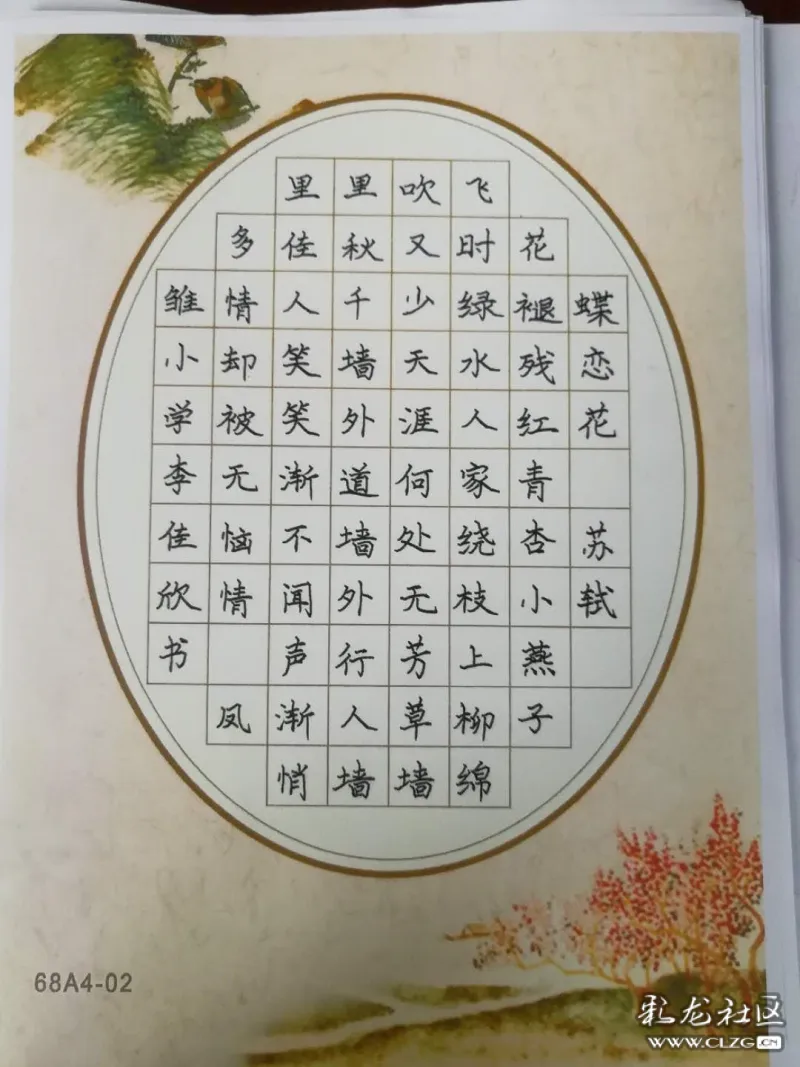 蝶恋花 苏轼
花褪残红青杏小燕子
飞时绿水人家绕枝上柳绵
吹又少天涯何处无芳草墙
里秋千墙外道墙外行人墙
里佳人笑笑渐不闻声渐悄
多情却被无恼情 凤
雏小学李佳欣书
68A4-02
彩龙社区
WWW.CLZG.CN